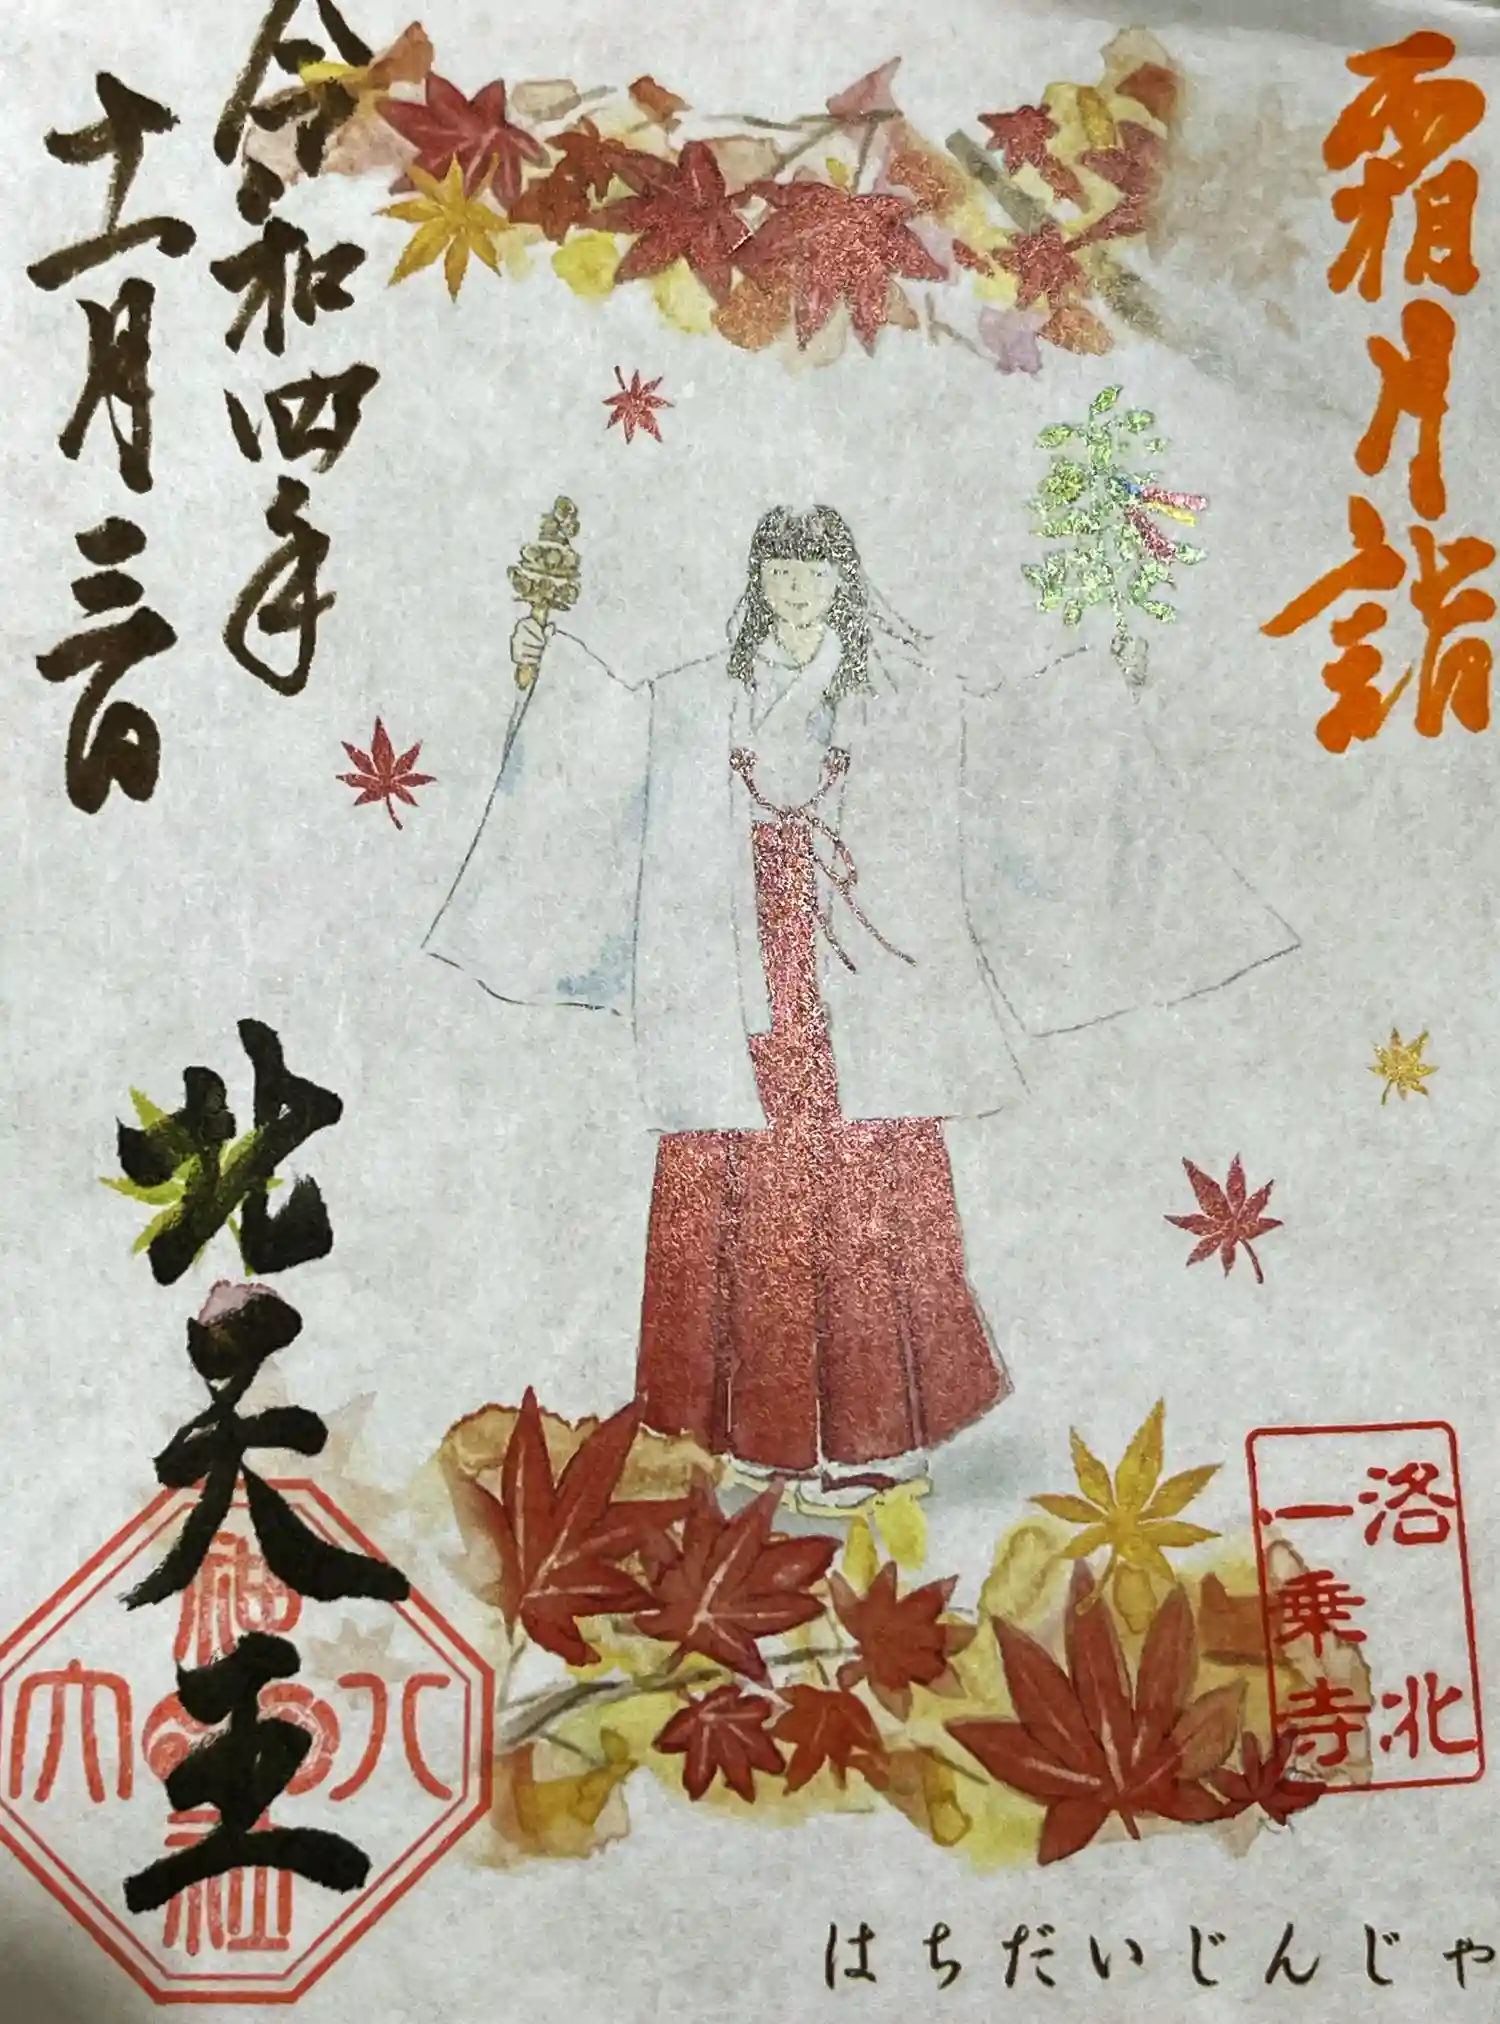 霜月詣
令和四年
十一月三日
北天王
八大
神社
洛北
一乗寺
はちだいじんじゃ